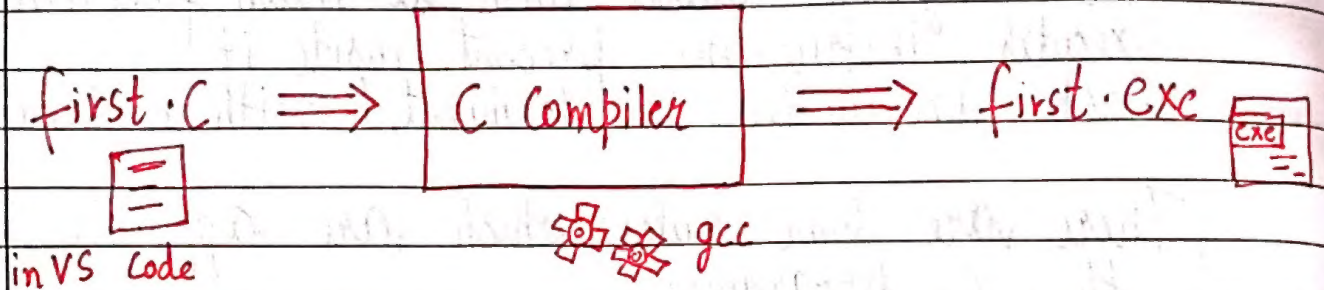 first.C ⟹ C Compiler ⟹ first.exe
exe
gcc
in VS Code